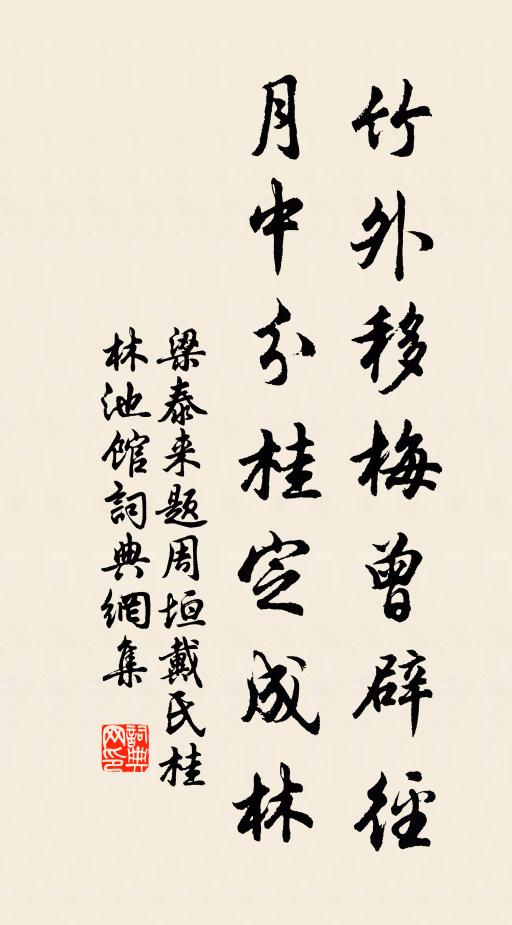 竹外移梅曾辟徑
月中分桂定成林
梁泰来題周垣戴氏桂
林池館詞典網集
詞典網印